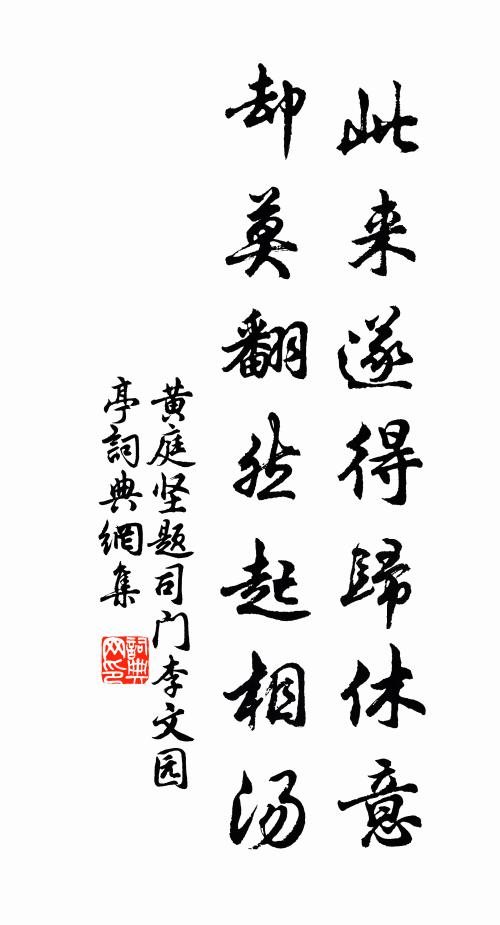 此来遂得歸休意
却莫翻然起相汤
黄庭坚题司门李文园
亭詞典網集
詞典網印